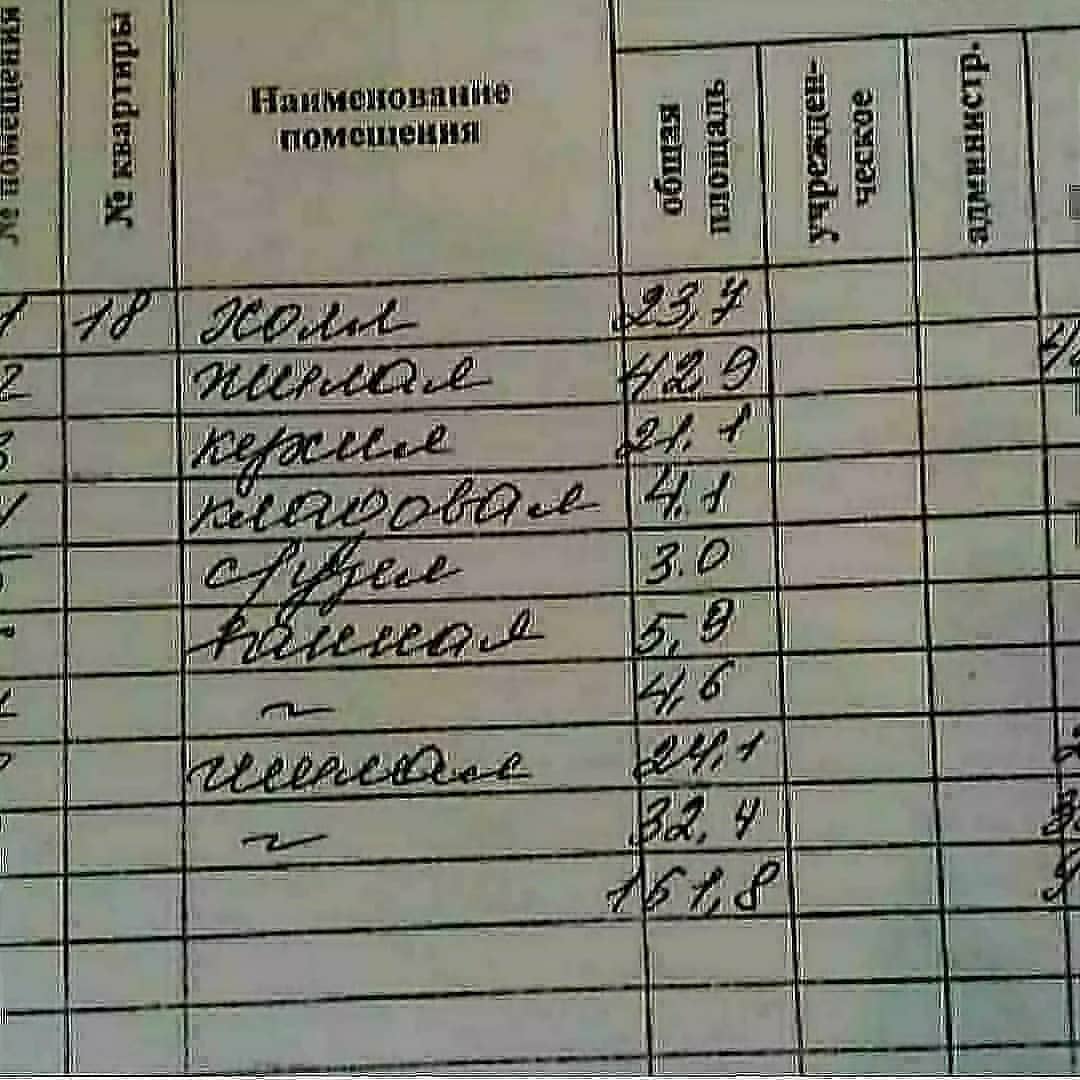 № помещения
№ квартиры
Наименование
помещения
общая
площадь
учрежден-
ческое
администр.
1 18 холл 23,7
2 жилая 42 9
3 кухня 21,1
4 кладовая 4,1
5 с/узел 3.0
ванная 5,9
~ 4,6
жилая 24,1
~ 32,4
161,8